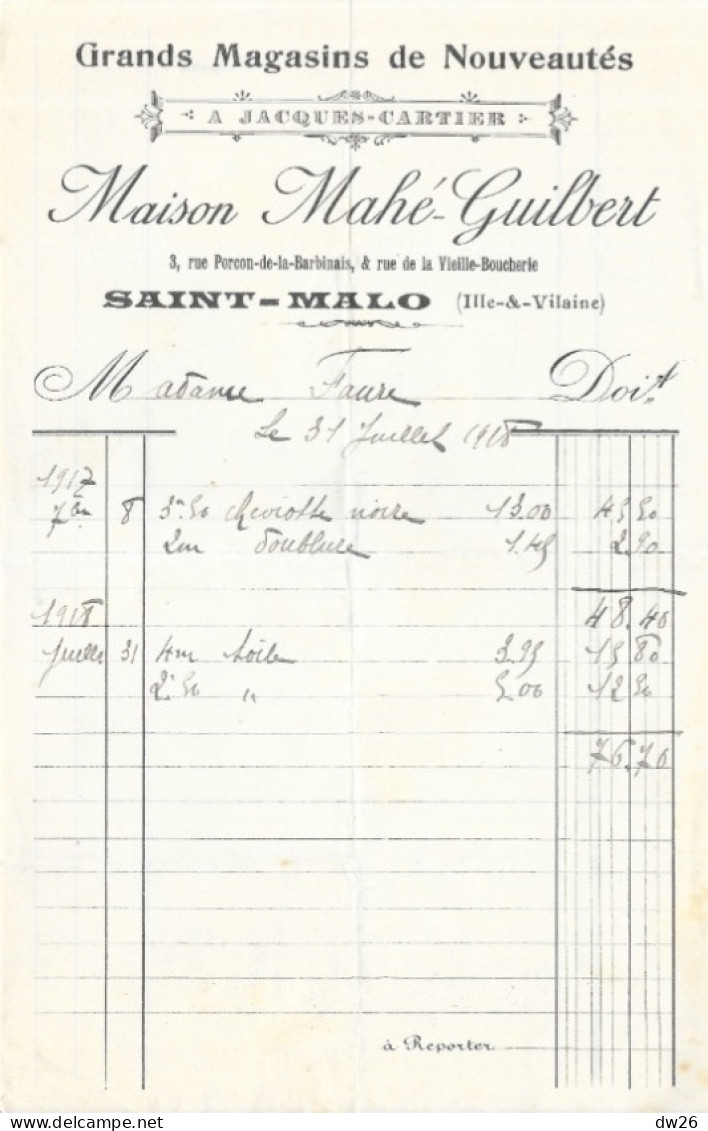 Grands Magasins de Nouveautés
A JACQUES-CARTIER
Maison Mahé-Guilbert
3, rue Porcon-de-la-Barbinais, & rue de la Vieille-Boucherie
SAINT-MALO (Ille-&-Vilaine)
Madame Faure Doit
Le 31 Juillet 1918
1917
7bre 8 3m50 cheviotte noire 13.00 45 50
2m doublure 1.45 2 90
1918 48.40
Juillet 31 4m toile 3.95 15 80
2.50 " 5.00 12 50
76.70
à Reporter
Delcampe.net
dw26